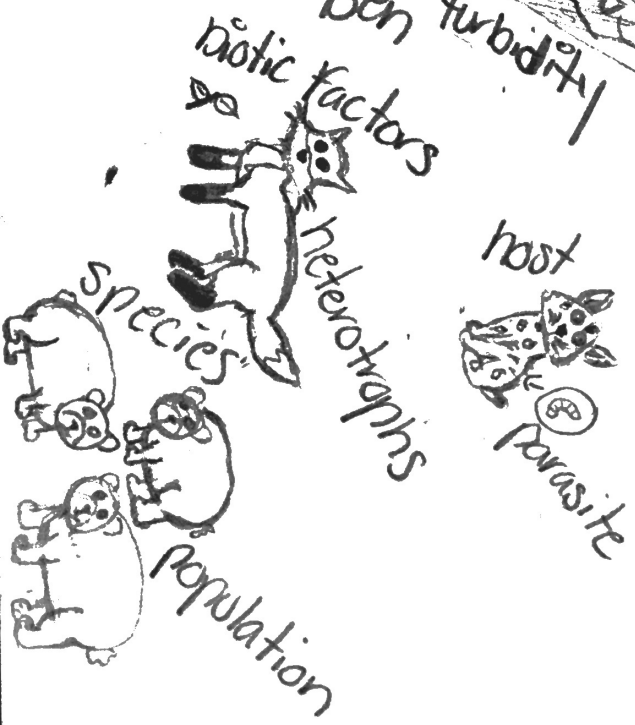 turbidity
biotic factors
heterotrophs
host
species
parasite
population